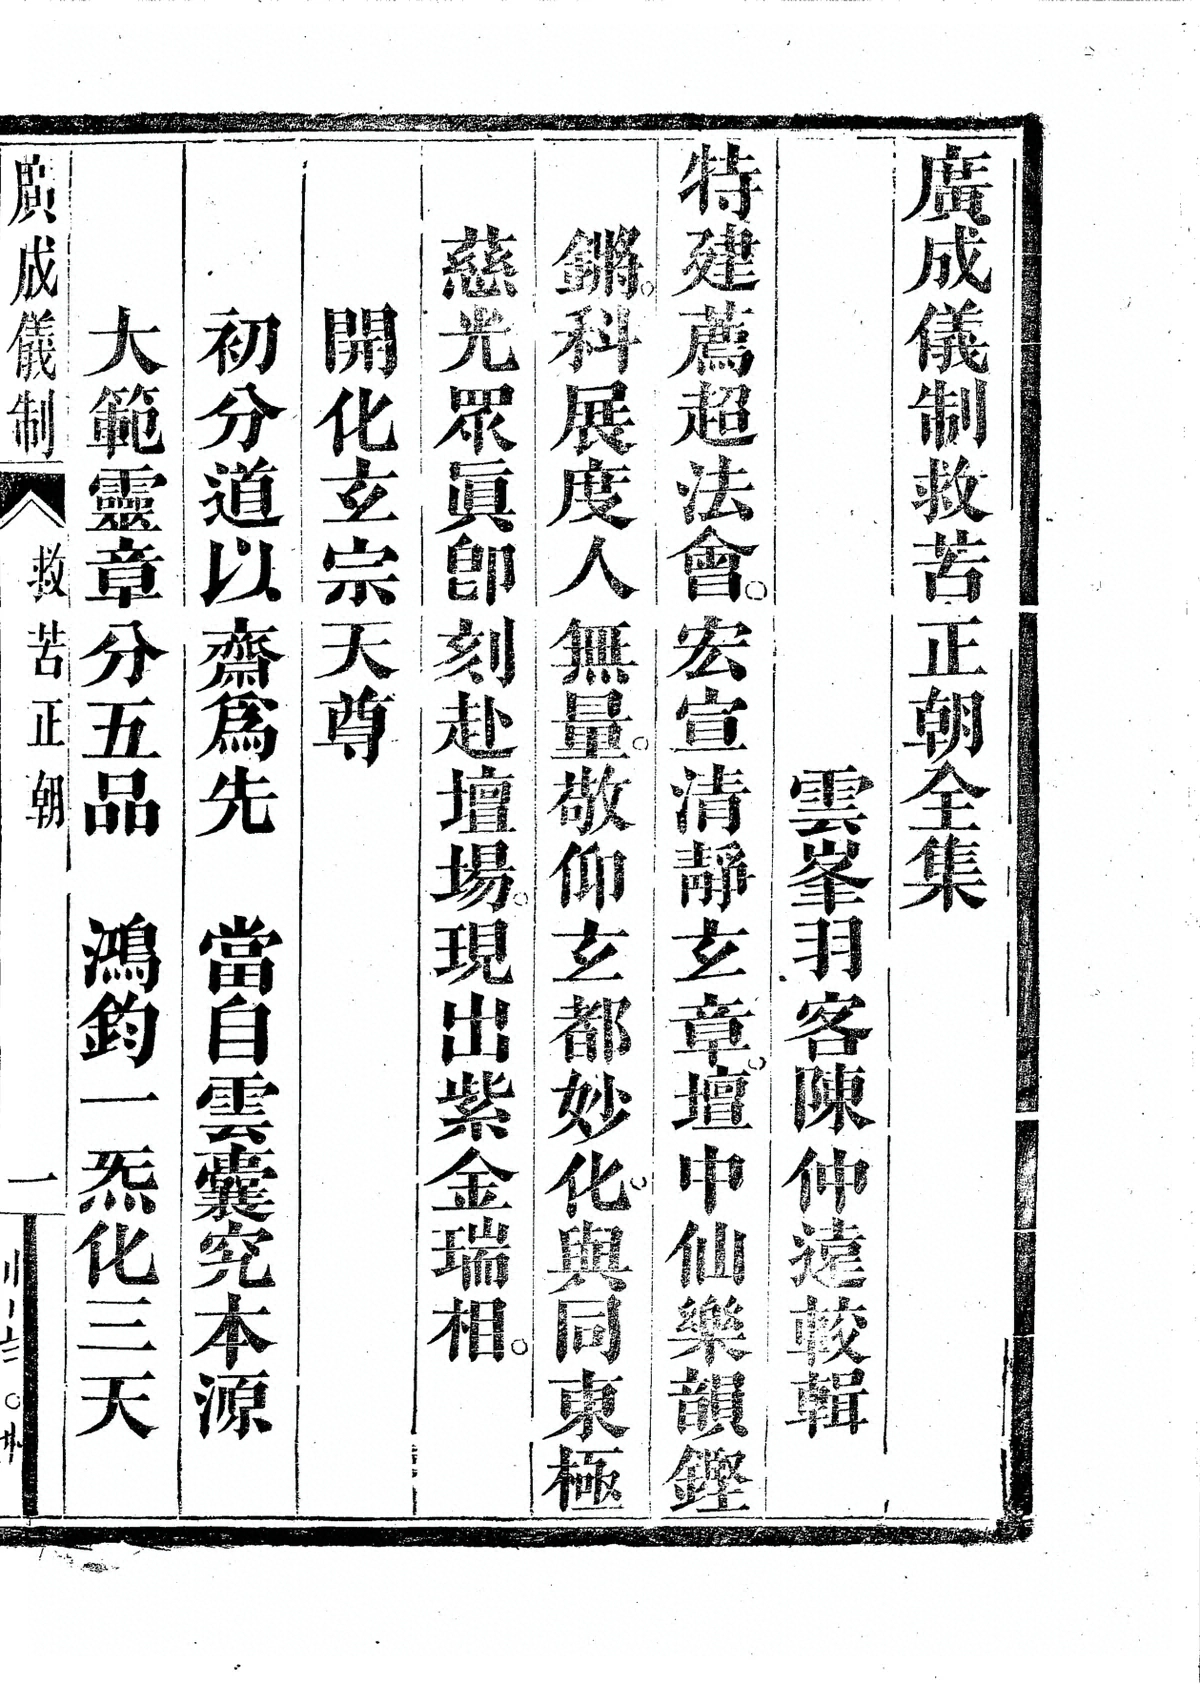 廣成儀制救苦正朝全集
雲峯羽客陳仲遠較輯
特建薦超法會。宏宣清靜玄章。壇中仙樂韻鏗
鏘。科展度人無量。敬仰玄都妙化。與同東極
慈光眾眞卽刻赴壇場。現出紫金瑞相。
開化玄宗天尊
初分道以齋爲先　當自雲囊究本源
大範靈章分五品　鴻鈞一炁化三天
廣成儀制　救苦正朝　一